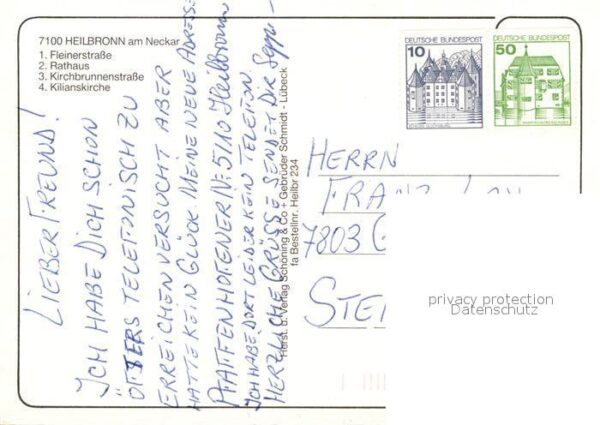 7100 HEILBRONN am Neckar
1. Fleinerstraße
2. Rathaus
3. Kirchbrunnenstraße
4. Kilianskirche
LIEBER FREUND!
ICH HABE DICH SCHON
ÖFTERS TELEFONISCH ZU
ERREICHEN VERSUCHT ABER
HATTE KEIN GLÜCK MEINE NEUE ADRESSE
PFAFFENHOFENER Nr 5/10 Heilbronn
ICH HABE DORT LEIDER KEIN TELEFON
HERZLICHE GRÜSSE SENDET DIR Seppi
Herst. u. Verlag Schöning & Co + Gebrüder Schmidt - Lübeck
fa Bestellnr. Heilbr 234
10 DEUTSCHE BUNDESPOST
50 DEUTSCHE BUNDESPOST
HERRN
FRANZ
7803
STE
privacy protection
Datenschutz